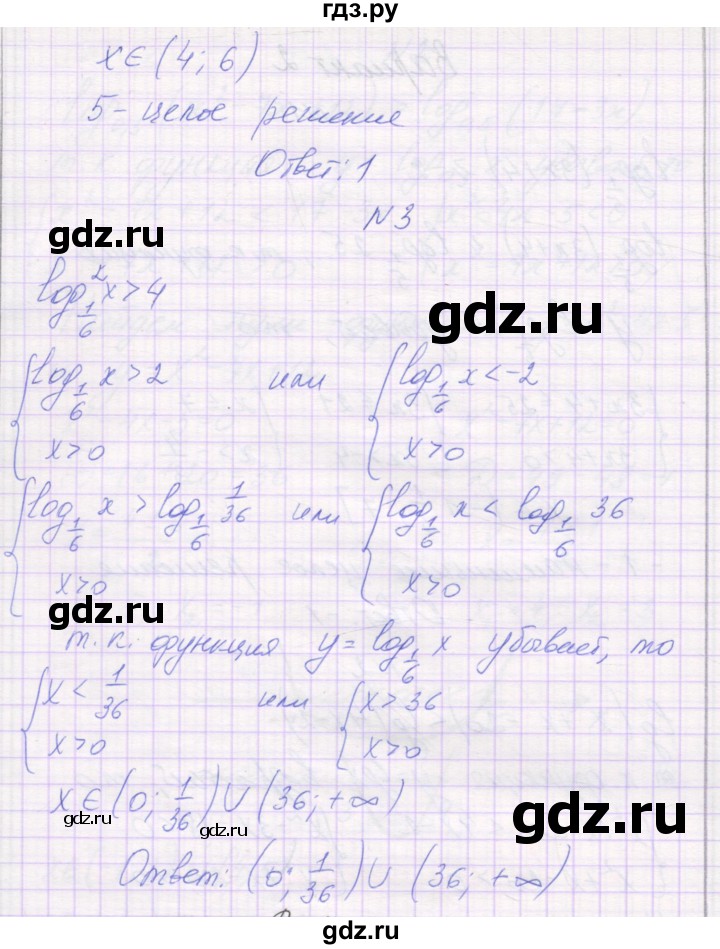 гдз.ру
x ∈ (4; 6)
5 – целое решение
Ответ: 1
N 3
gdz.ru
log²_{1/6} x > 4
gdz.ru
{ log_{1/6} x > 2 или { log_{1/6} x < -2
x > 0 x > 0
{ log_{1/6} x > log_{1/6} 1/36 или { log_{1/6} x < log_{1/6} 36
x > 0 x > 0
gdz.ru
т.к. функция y = log_{1/6} x убывает, то
{ x < 1/36 или { x > 36
x > 0 x > 0
x ∈ (0; 1/36) ∪ (36; +∞)
gdz.ru
gdz.ru
gdz.ru
Ответ: (0; 1/36) ∪ (36; +∞)